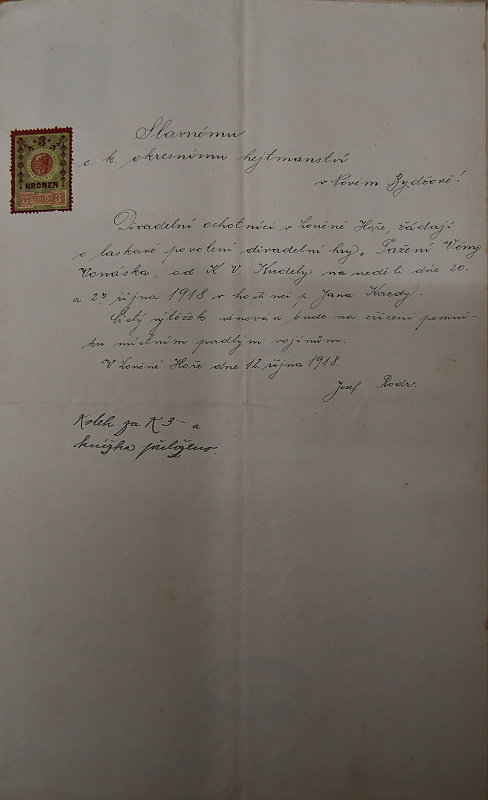 Slavnému
c. k. okresnímu hejtmanství
v Novém Bydžově!
3
KRONEN
1910
Divadelní ochotníci v Lovčné Hoře, žádají
o laskavé povolení divadelní hry „Tažení Vény
Vonáska, od K. V. na neděli dne 20.
a 27. října 1918 v hostinci p. Jana Kazdy.
Čistý výtěžek věnován bude na zřízení pomní-
ku místním padlým vojínům.
V Lovčné Hoře dne 12. října 1918.
Josef
Kolek za K 3 - a
knížka přiložena.